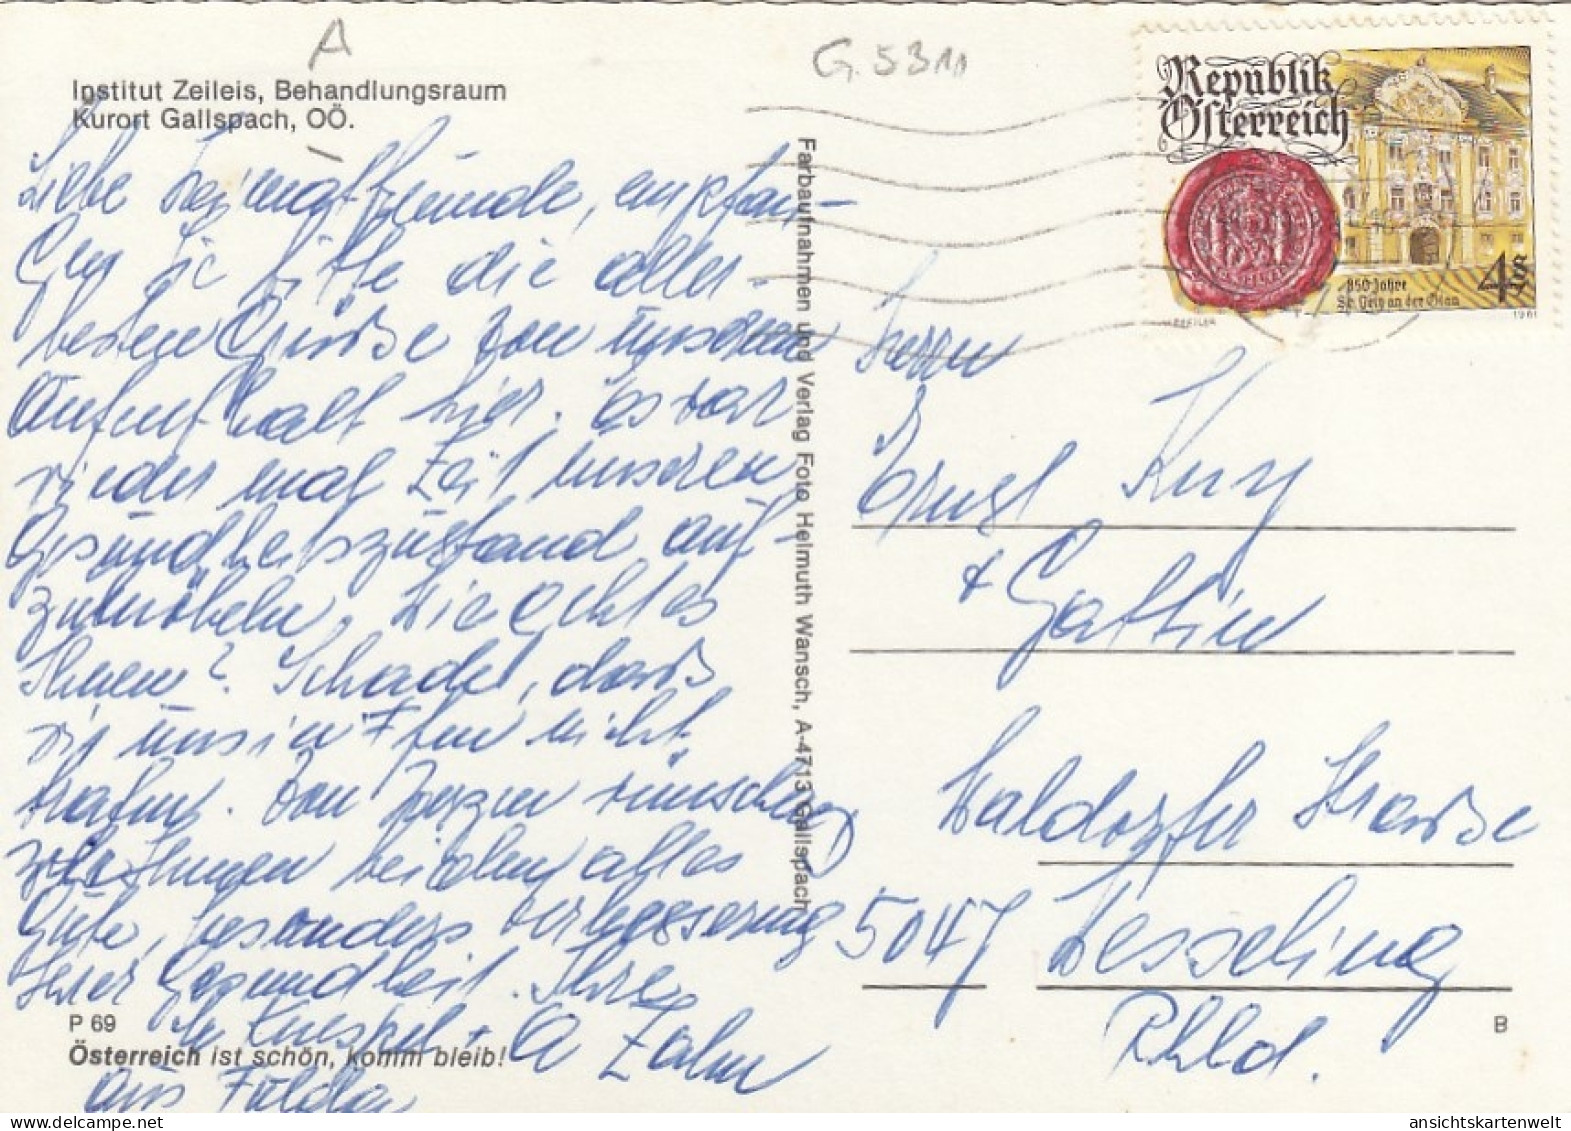 A
G. 5311
Institut Zeileis, Behandlungsraum
Kurort Gallspach, OÖ.
Republik
Österreich
850 Jahre
St. Veit an der Glan
4 S
1981
Liebe Heimatfreunde, empfan-
gen Sie bitte die aller-
besten Grüße von unserem
Aufenthalt hier. Es war
wieder mal Zeit unseren
Gesundheitszustand auf-
zumöbeln. Wie geht es
Ihnen? Schade, daß
wir uns in nicht
trafen. Von Herzen wünschen
Ihnen beiden alles
Gute, besonders Verbesserung
Ihrer Gesundheit. Ihre
+ Zahn
aus Fulda
Farbaufnahmen und Verlag Foto Helmuth Wansch, A-4713 Gallspach
Herrn
Ernst
+ Gattin
Waldorfer Straße
5047 Wesseling
Rhld.
P 69
B
Österreich ist schön, komm bleib!
ansichtskartenwelt